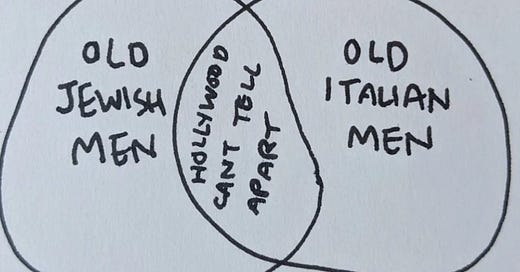 OLD
JEWISH
MEN
HOLLYWOOD
CANT TELL
APART
OLD
ITALIAN
MEN